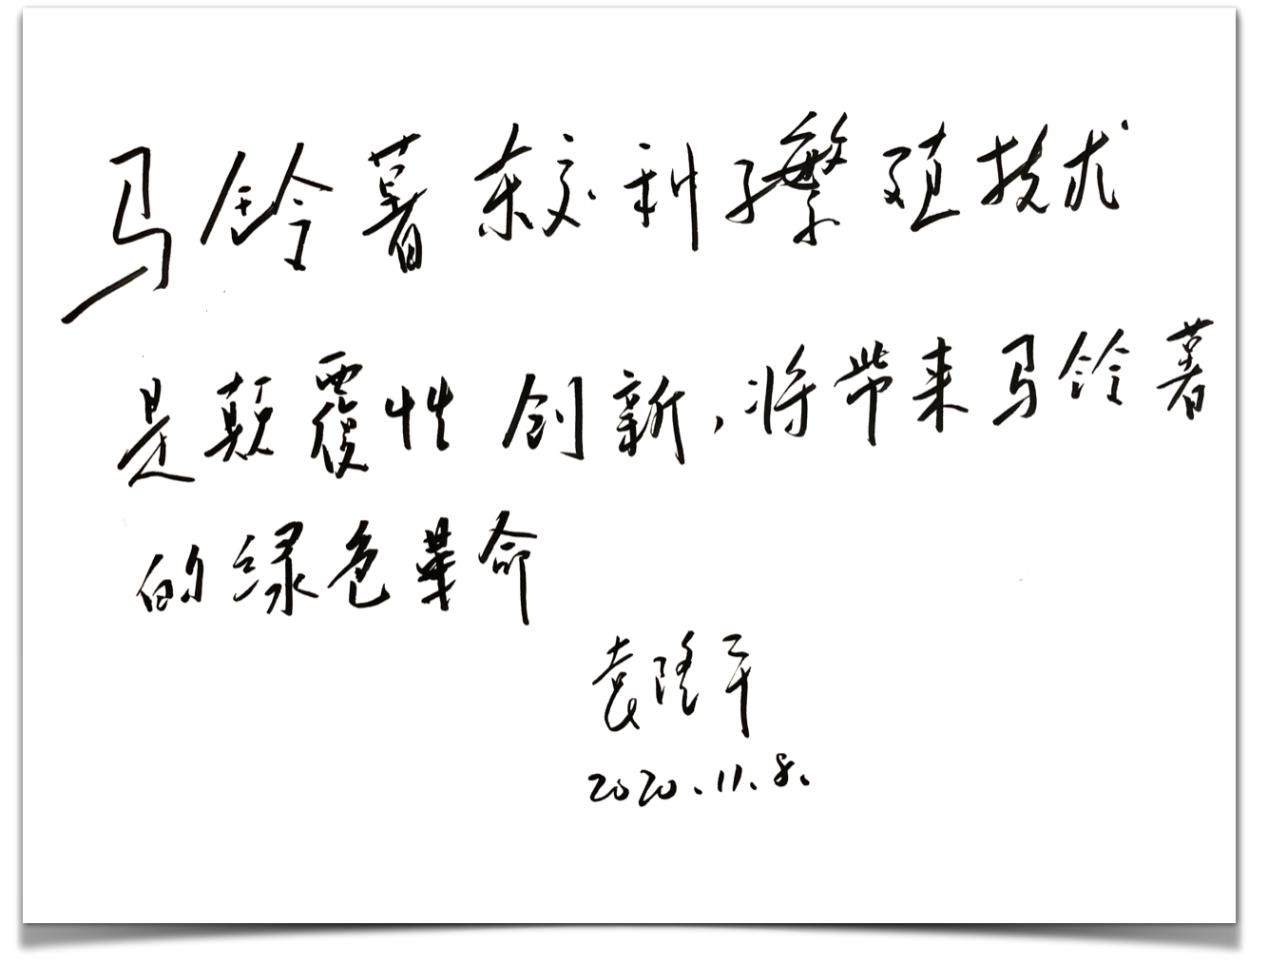 马铃薯杂交种子繁殖技术
是颠覆性创新,将带来马铃薯
的绿色革命
袁隆平
2020.11.8.